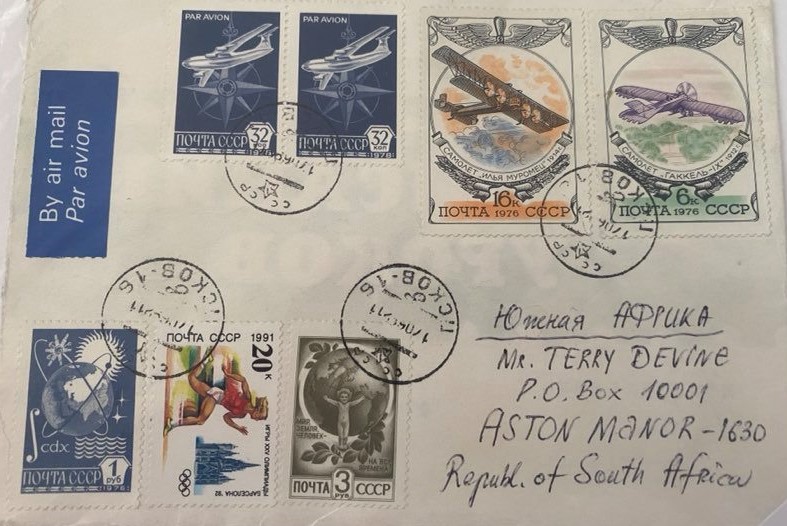 By air mail
Par avion
PAR AVION
ПОЧТА СССР 32 коп
1978
PAR AVION
ПОЧТА СССР 32 коп
1978
САМОЛЕТ „ИЛЬЯ МУРОМЕЦ"
16к
ПОЧТА 1976 СССР
САМОЛЕТ „ГАККЕЛЬ-IX" 1912
6к
ПОЧТА 1976 СССР
СССР
СССР
ПСКОВ-16
ПСКОВ-16
∫ cdx
ПОЧТА СССР 1 руб
1976
ПОЧТА СССР 1991
20к
ИГРЫ XXV ОЛИМПИАДЫ
БАРСЕЛОНА '92
ЗЕМЛЯ,
ЧЕЛОВЕК-
НА ВСЕ
ВРЕМЕНА
ПОЧТА 3 руб СССР
Южная АФРИКА
Mr. TERRY DEVINE
P.O. Box 10001
ASTON MANOR-1630
Republ. of South Africa